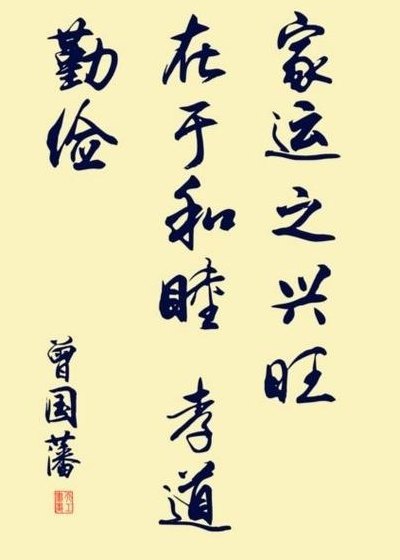 家运之兴旺
在于和睦 孝道
勤俭
曾国藩